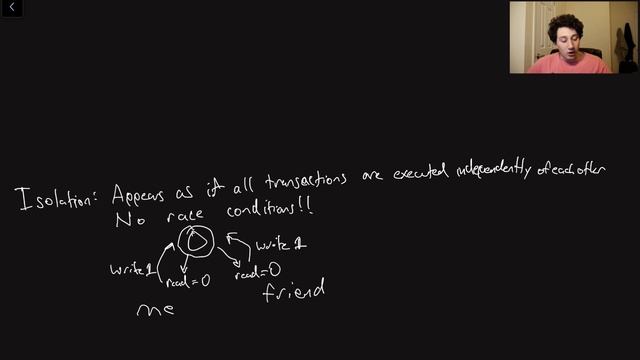 Isolation: Appears as if all transactions are executed independently of each other
No race conditions!!
0
write 1
write 1
read=0
read=0
me
friend